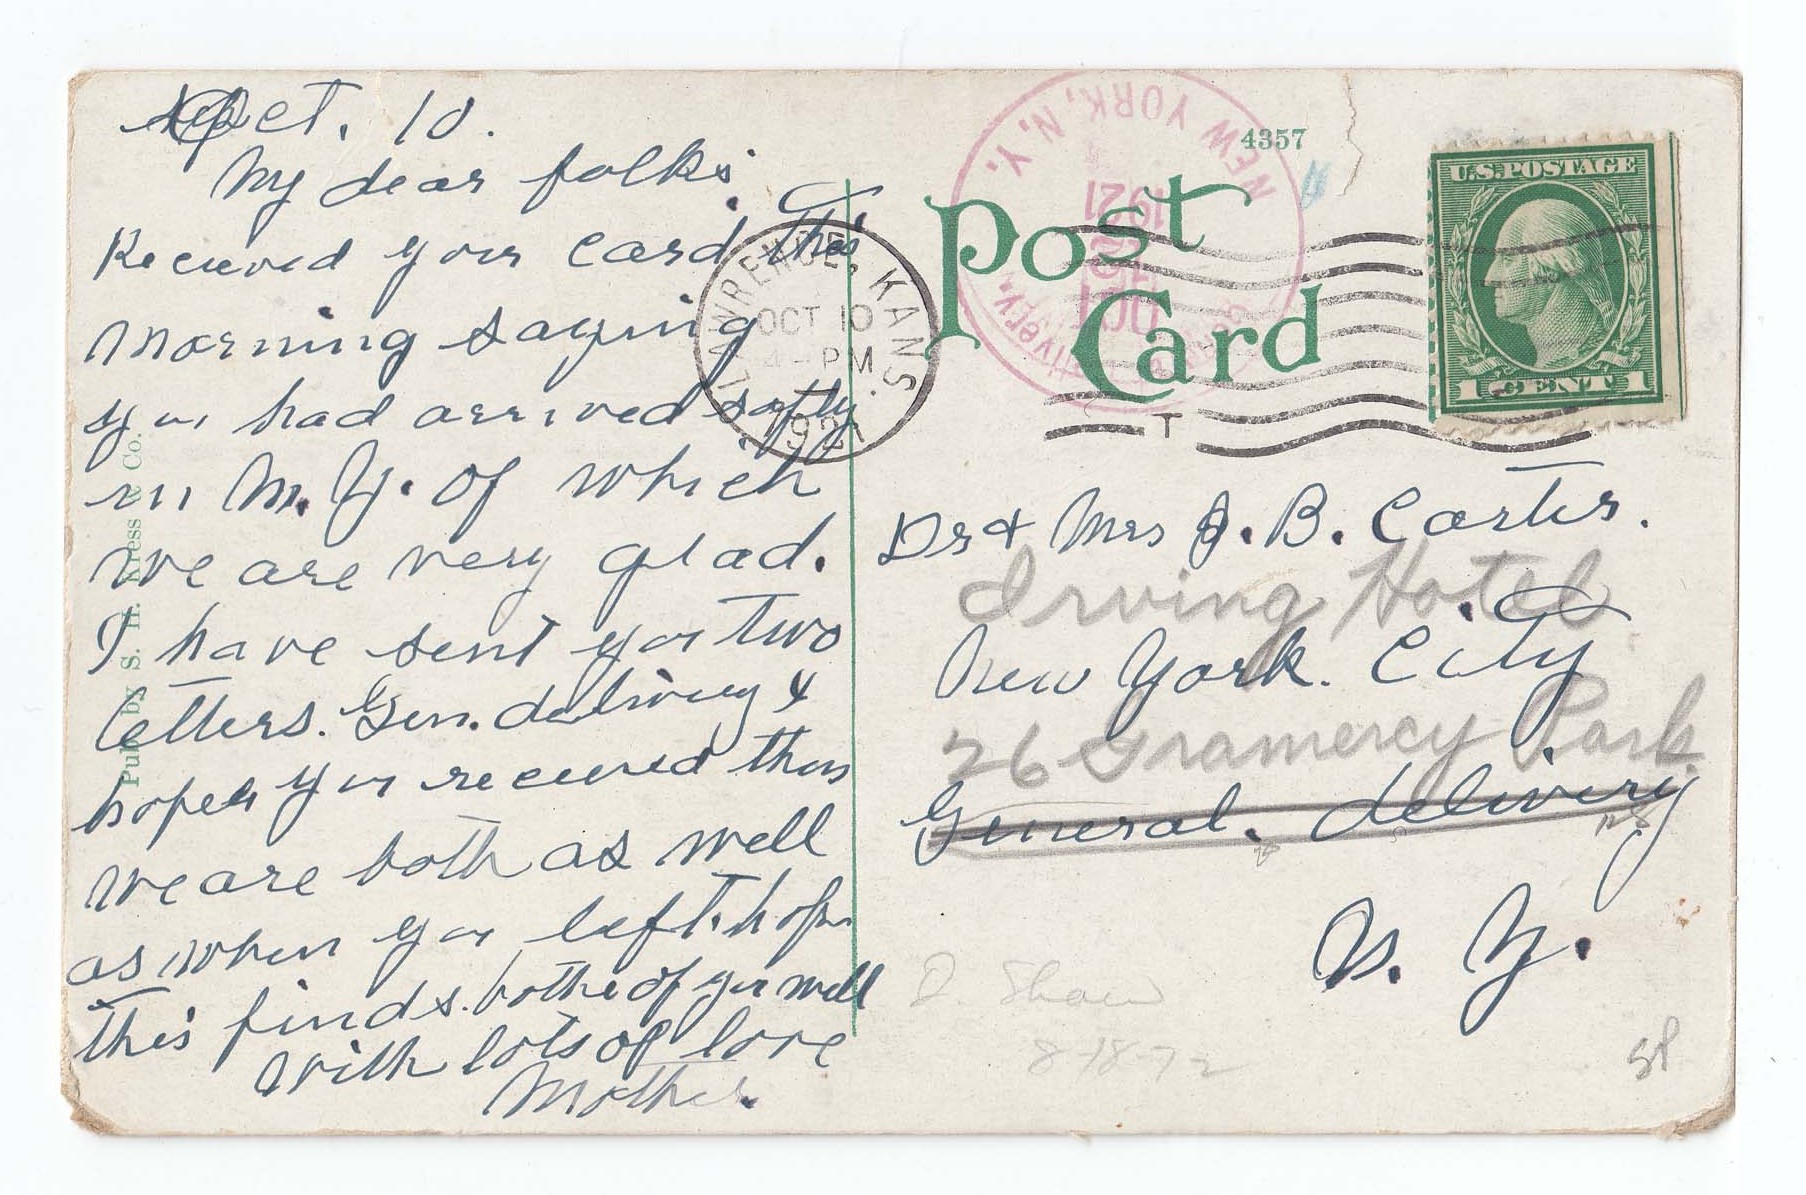 Oct. 10.
My dear folks.
Recieved your card this
morning saying
you had arrived safly
in N.Y. of which
we are very glad.
I have sent you two
letters. Gen. delivery &
hopes you recieved them
we are both as well
as when you left. hope
this finds. bothe of you well
with lots of love
Mother.
Pub. by S. H. Kress & Co.
LAWRENCE, KANS.
OCT 10
4-PM
1921
NEW YORK, N.Y.
OCT
1921
Delivery.
4357
Post
Card
T
U.S. POSTAGE
1 CENT 1
Dr & Mrs J. B. Carter.
Irving Hotel
New York. City
26 Gramercy Park.
General. delivery
N. Y.
D. Shaw
8-18-72